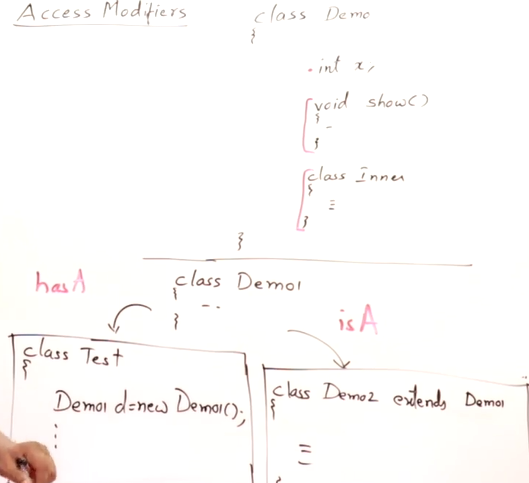 Access Modifiers
class Demo
{
int x,
void show()
{
}
class Inner
{
}
}
hasA
class Demo1
{
}
isA
class Test
{
Demo1 d=new Demo1();
class Demo2 extends Demo1
{